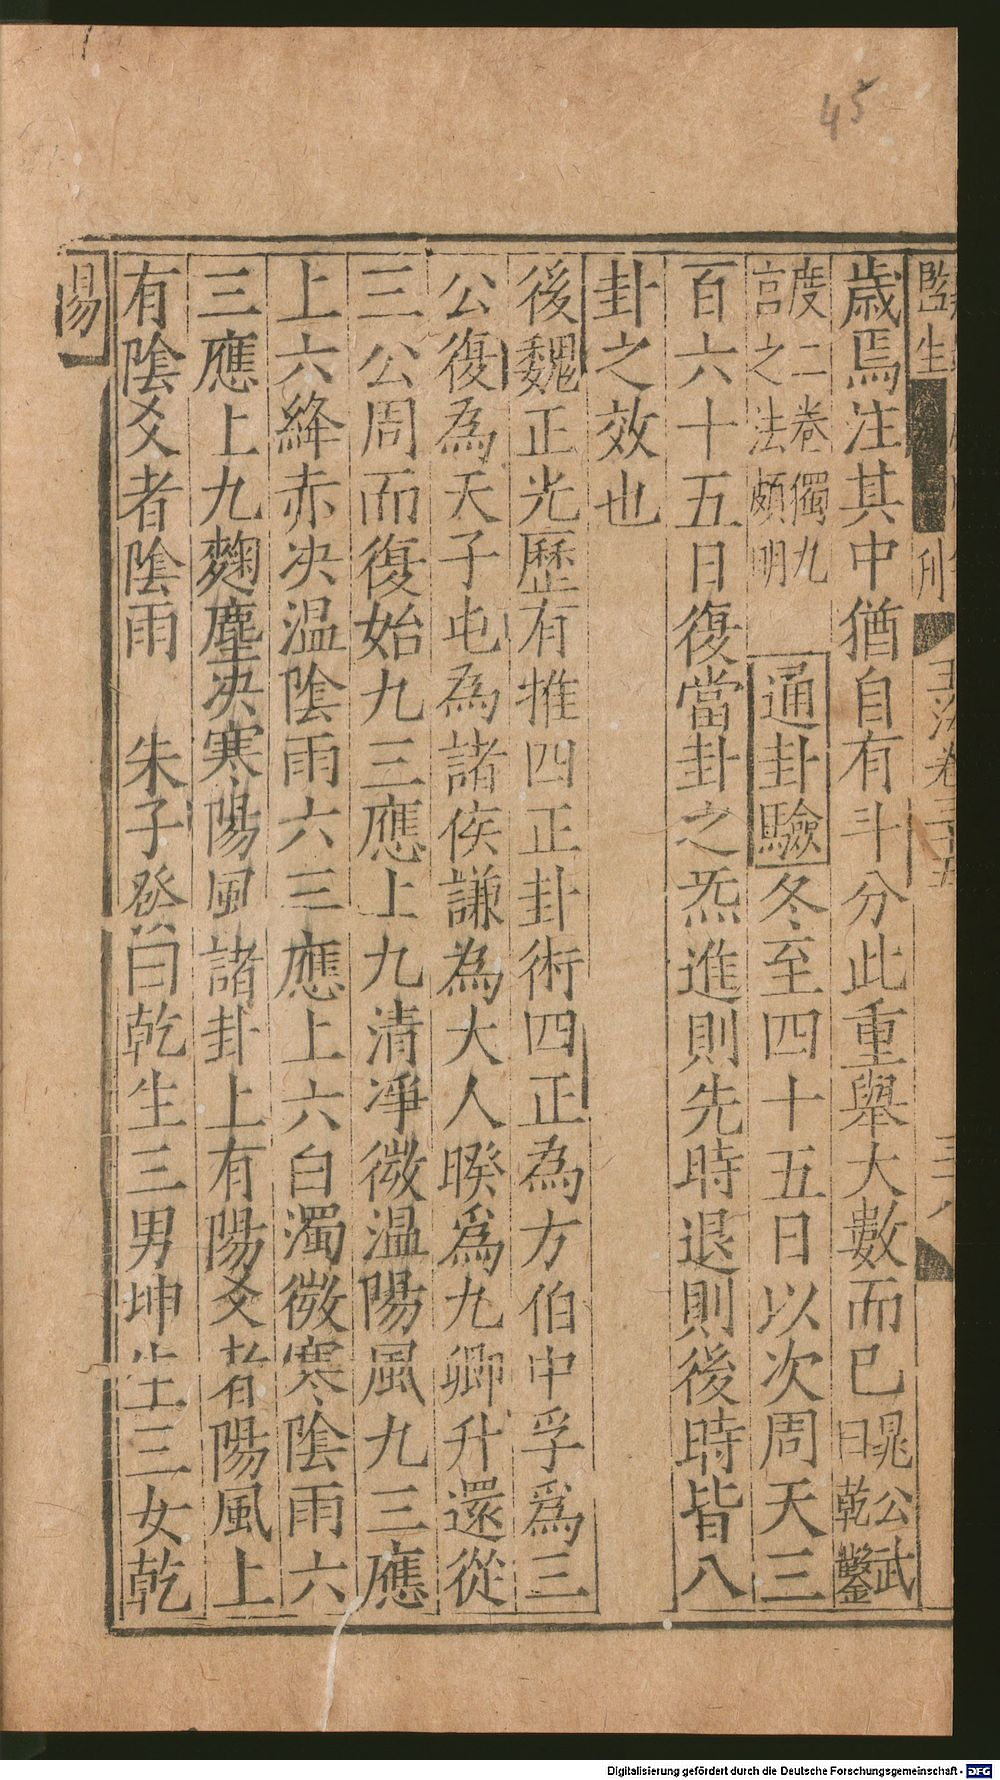 45
監生
刊
玉海卷三十五
歲焉注其中猶自有斗分此重舉大數而已晁公武曰乾鑿
度二卷獨九宮之法頗明 通卦驗冬至四十五日以次周天三
百六十五日復當卦之炁進則先時退則後時皆八
卦之效也
後魏正光歷有推四正卦術四正為方伯中孚爲三
公復為天子屯為諸侯謙為大人暌爲九卿升還從
三公周而復始九三應上九清凈微温陽風九三應
上六絳赤决温隂雨六三應上六白濁微寒隂雨六
三應上九麴塵决寒陽風諸卦上有陽爻者陽風上
有隂爻者隂雨 朱子發曰乾生三男坤生三女乾
陽
Digitalisierung gefördert durch die Deutsche Forschungsgemeinschaft - DFG